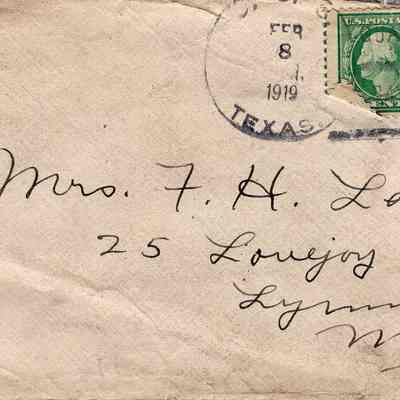 FEB
8
1919
TEXAS
U.S. POSTA
CENT
Mrs. F. H. La
25 Lovejoy
Lynn